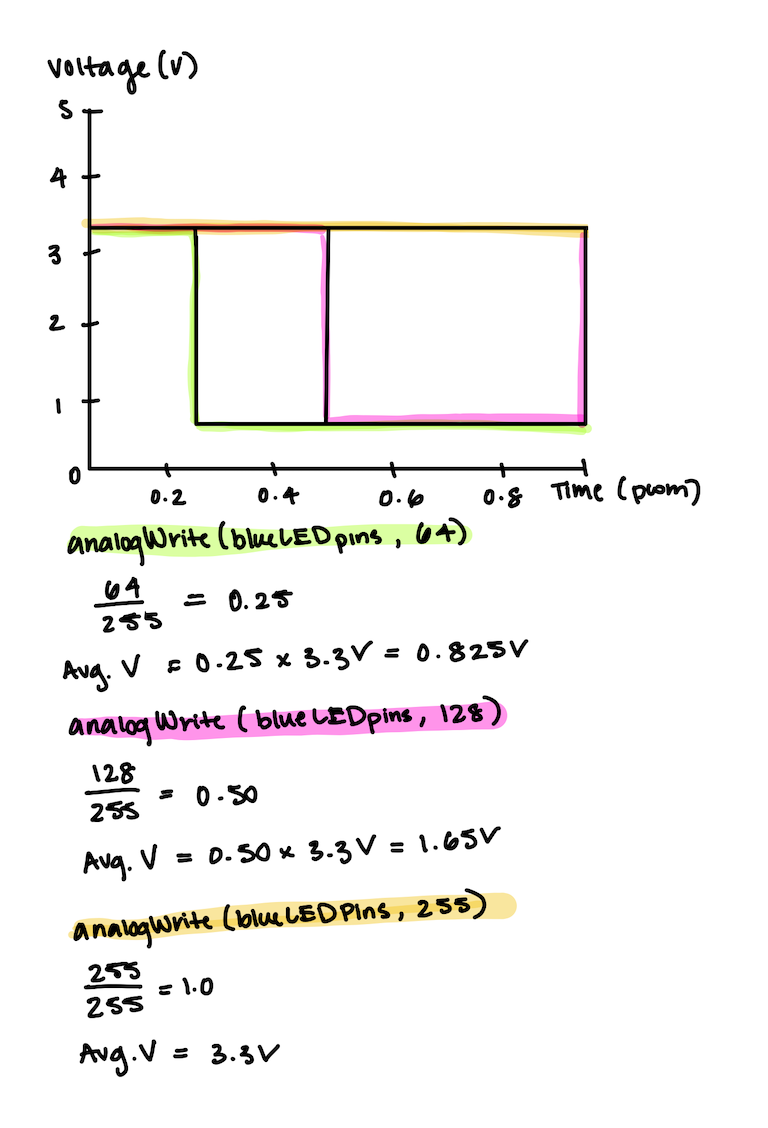 Voltage (V)
5
4
3
2
1
0
0.2 0.4 0.6 0.8 Time (pwm)
analogWrite (blueLEDpins , 64)
64
255
= 0.25
Avg. V = 0.25 x 3.3V = 0.825V
analogWrite (blueLEDpins, 128)
128
255
= 0.50
Avg. V = 0.50 x 3.3V = 1.65V
analogWrite (blueLEDPins, 255)
255
255
= 1.0
Avg. V = 3.3V